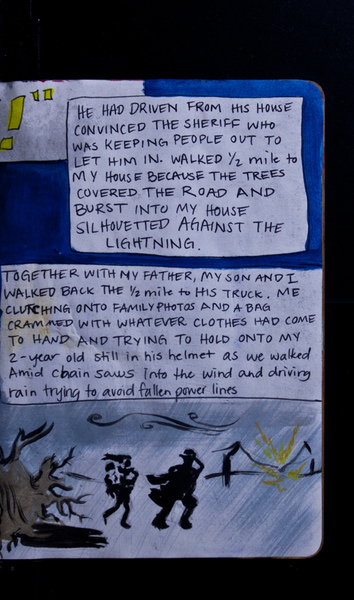 !"
HE HAD DRIVEN FROM HIS HOUSE
CONVINCED THE SHERIFF WHO
WAS KEEPING PEOPLE OUT TO
LET HIM IN. WALKED ½ mile to
MY HOUSE BECAUSE THE TREES
COVERED THE ROAD AND
BURST INTO MY HOUSE
SILHOVETTED AGAINST THE
LIGHTNING.
TOGETHER WITH MY FATHER, MY SON AND I
WALKED BACK THE ½ mile to HIS TRUCK. ME
CLUTCHING ONTO FAMILY PHOTOS AND A BAG
CRAMMED WITH WHATEVER CLOTHES HAD COME
TO HAND AND TRYING TO HOLD ONTO MY
2-year old still in his helmet as we walked
Amid chain saws into the wind and driving
rain trying to avoid fallen power lines